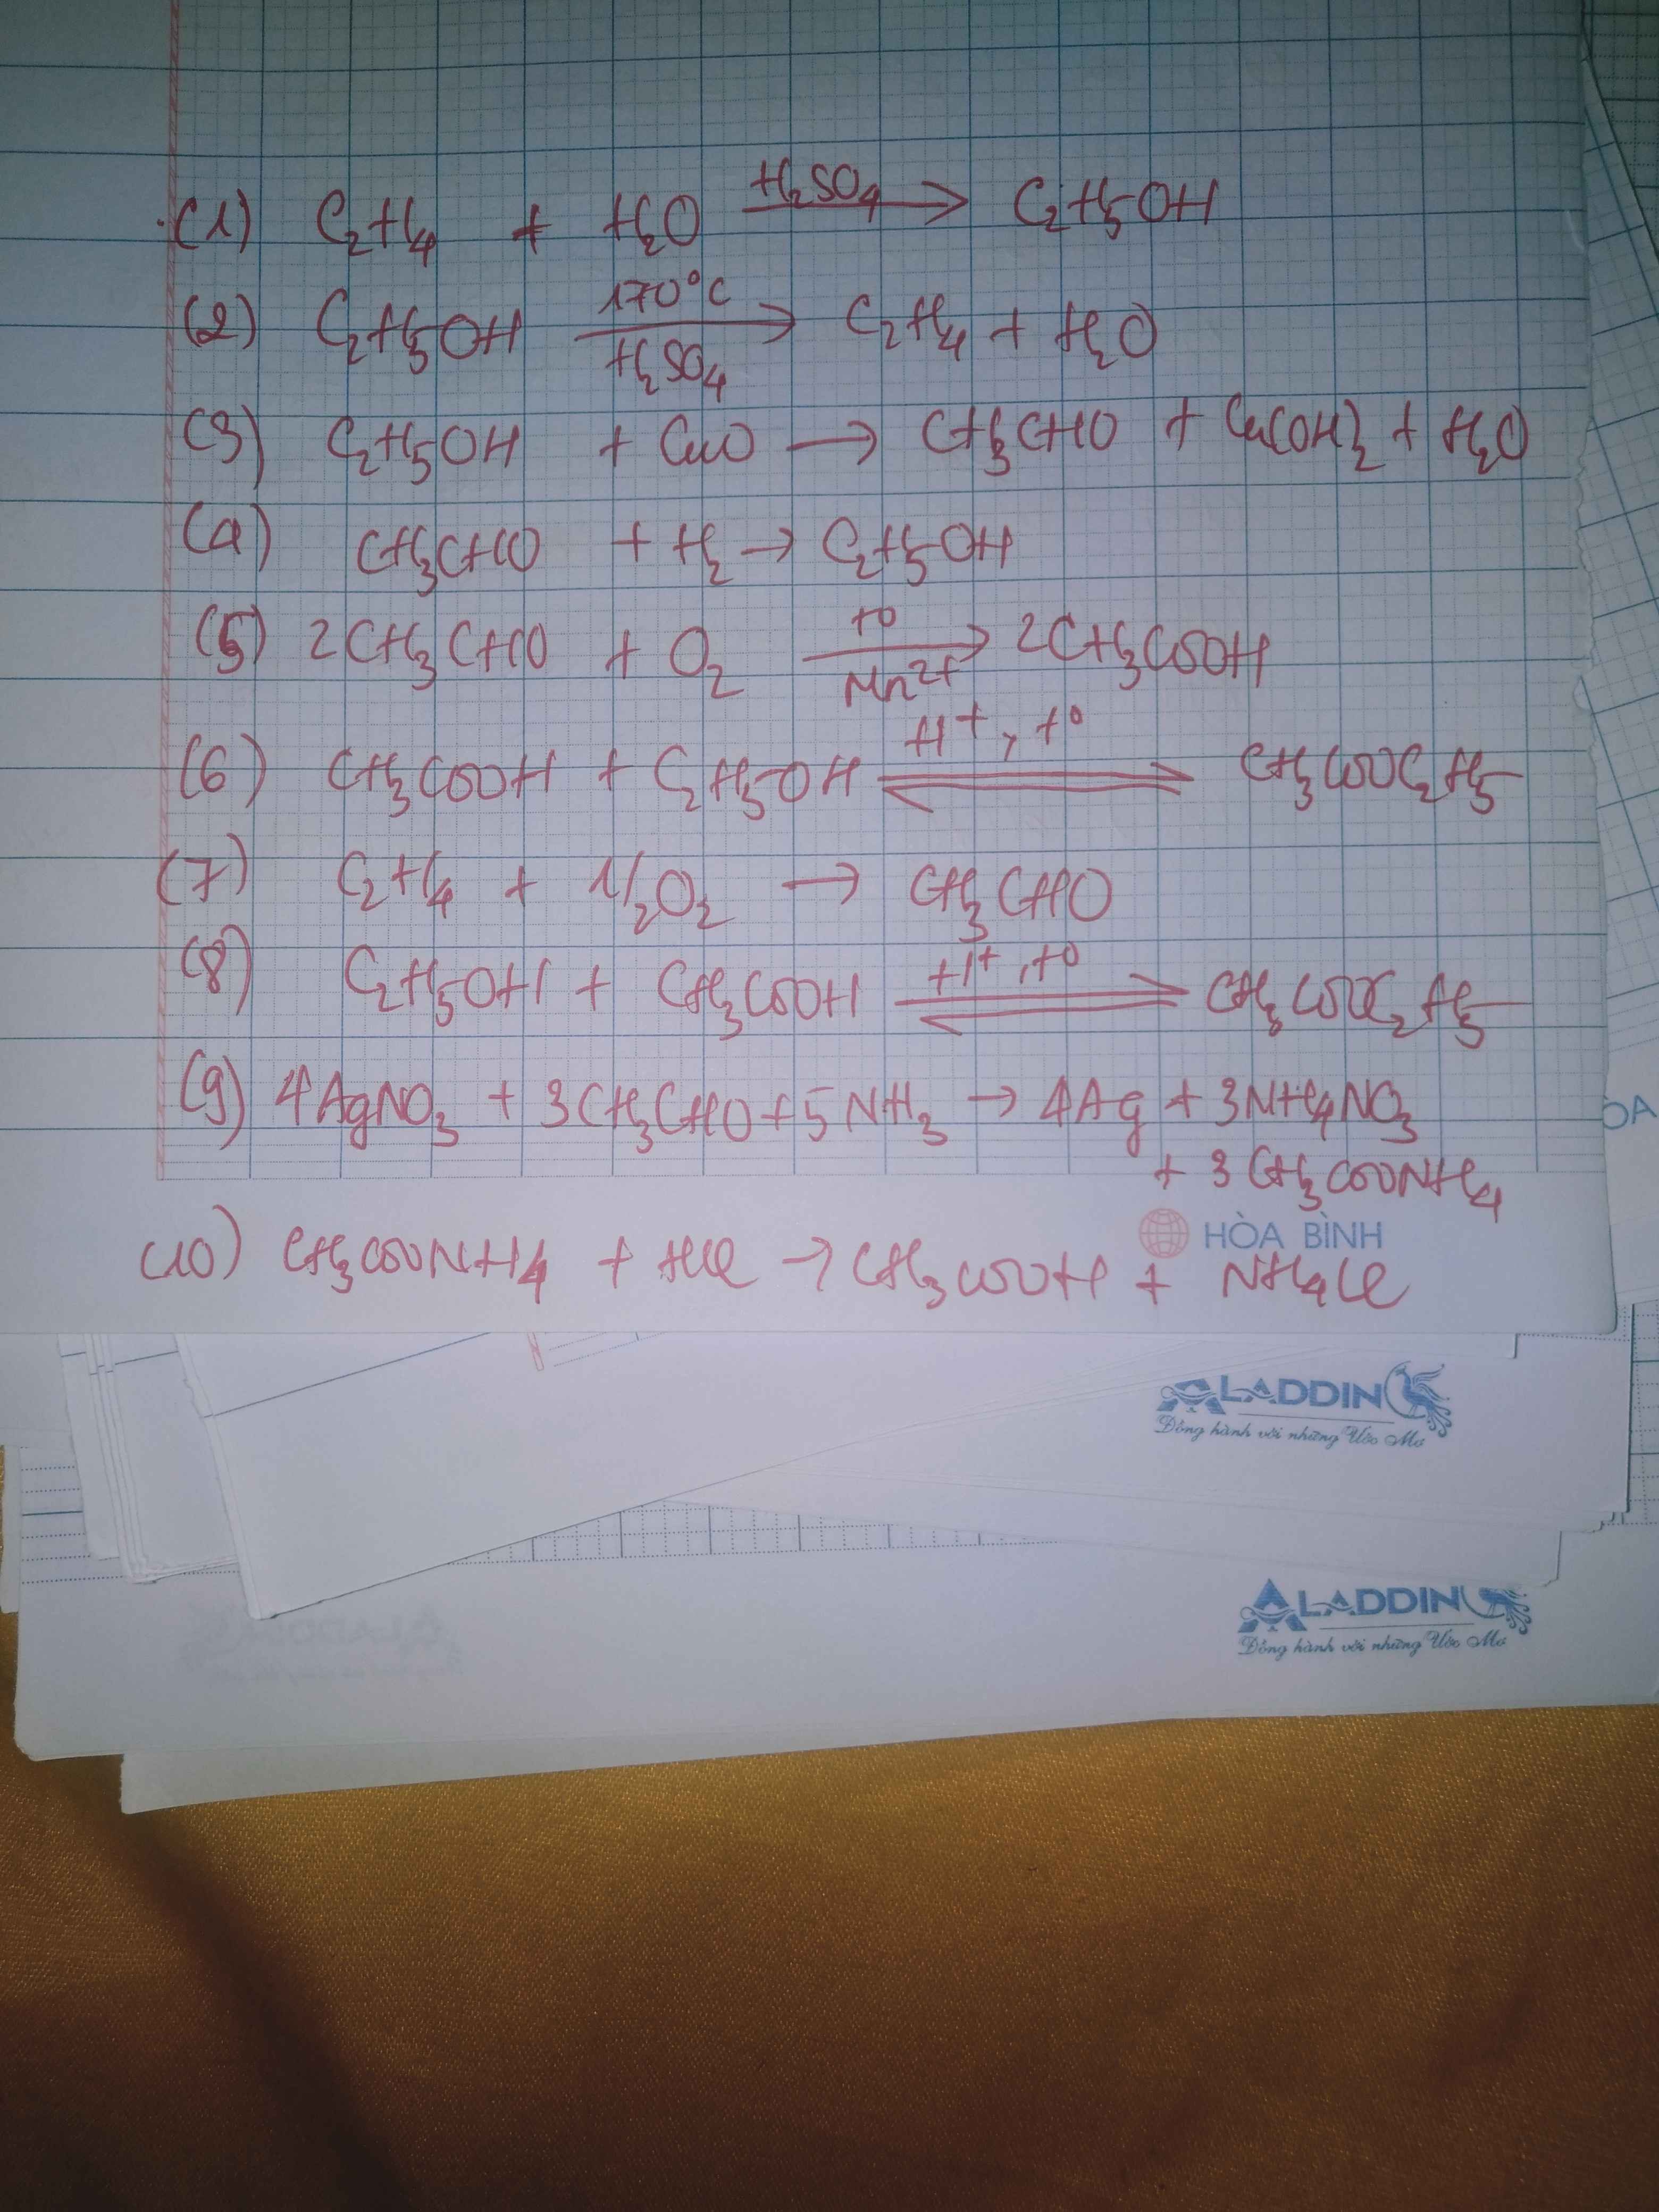 (1) C₂H₄ + H₂O —H₂SO₄→ C₂H₅OH
(2) C₂H₅OH —170°C / H₂SO₄→ C₂H₄ + H₂O
(3) C₂H₅OH + CuO → CH₃CHO + Cu(OH)₂ + H₂O
(4) CH₃CHO + H₂ → C₂H₅OH
(5) 2CH₃CHO + O₂ —t° / Mn²⁺→ 2CH₃COOH
(6) CH₃COOH + C₂H₅OH ⇌ H⁺, t° CH₃COOC₂H₅
(7) C₂H₄ + 1/2O₂ → CH₃CHO
(8) C₂H₅OH + CH₃COOH ⇌ H⁺, t° CH₃COOC₂H₅
(9) 4AgNO₃ + 3CH₃CHO + 5NH₃ → 4Ag + 3NH₄NO₃
+ 3CH₃COONH₄
OA
HÒA BÌNH
(10) CH₃COONH₄ + HCl → CH₃COOH + NH₄Cl
ALADDIN
Đồng hành với những Ước Mơ
ALADDIN
Đồng hành với những Ước Mơ